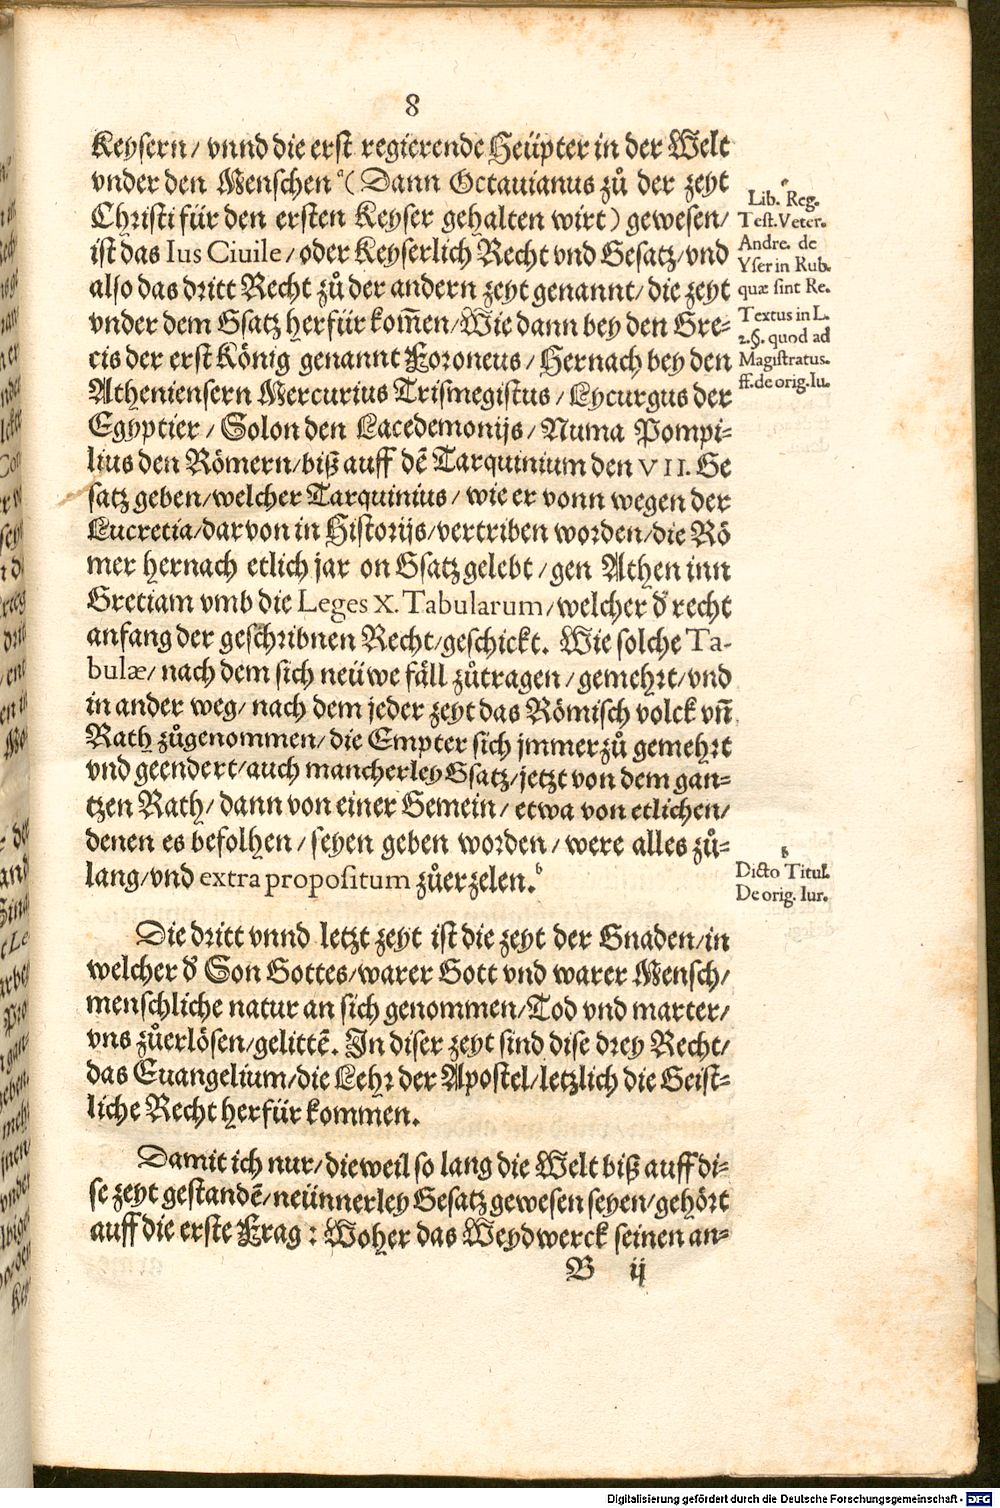 8
Keysern/ vnnd die erst regierende Heüpter in der Welt
vnder den Menschen ᵃ (Dann Octauianus zů der zeyt
Christi für den ersten Keyser gehalten wirt) gewesen/
ist das Ius Ciuile/ oder Keyserlich Recht vnd Gesatz/ vnd
also das dritt Recht zů der andern zeyt genannt/ die zeyt
vnder dem Gsatz herfür kom̃en/ Wie dann bey den Gre=
cis der erst König genannt Foroneus/ Hernach bey den
Atheniensern Mercurius Trismegistus/ Lycurgus der
Egyptier/ Solon den Lacedemonijs/ Numa Pompi=
lius den Römern/ biß auff dẽ Tarquinium den VII. Ge
satz geben/ welcher Tarquinius/ wie er vonn wegen der
Lucretia/ darvon in Historijs/ vertriben worden/ die Rö
mer hernach etlich jar on Gsatz gelebt/ gen Athen inn
Gretiam vmb die Leges X. Tabularum/ welcher d̕ recht
anfang der geschribnen Recht/ geschickt. Wie solche Ta-
bulæ/ nach dem sich neüwe fäll zůtragen/ gemehrt/ vnd
in ander weg/ nach dem jeder zeyt das Römisch volck vñ
Rath zůgenommen/ die Empter sich jmmerzů gemehrt
vnd geendert/ auch mancherley Gsatz/ jetzt von dem gan=
tzen Rath/ dann von einer Gemein/ etwa von etlichen/
denen es befolhen/ seyen geben worden/ were alles zů=
lang/ vnd extra propositum zůerzelen.ᵇ
ᵃ
Lib. Reg.
Test. Veter.
Andre. de
Yser in Rub.
quæ sint Re.
Textus in L.
2.§. quod ad
Magistratus.
ff. de orig. Iu.
b
Dicto Titul.
De orig. Iur.
Die dritt vnnd letzt zeyt ist die zeyt der Gnaden/ in
welcher d̕ Son Gottes/ warer Gott vnd warer Mensch/
menschliche natur an sich genommen/ Tod vnd marter/
vns zůerlösen/ gelittẽ. In diser zeyt sind dise drey Recht/
das Euangelium/ die Lehr der Apostel/ letzlich die Geist=
liche Recht herfür kommen.
Damit ich nur/ dieweil so lang die Welt biß auff di=
se zeyt gestandẽ/ neünnerley Gesatz gewesen seyen/ gehört
auff die erste Frag: Woher das Weydwerck seinen an=
B ij
Digitalisierung gefördert durch die Deutsche Forschungsgemeinschaft - DFG